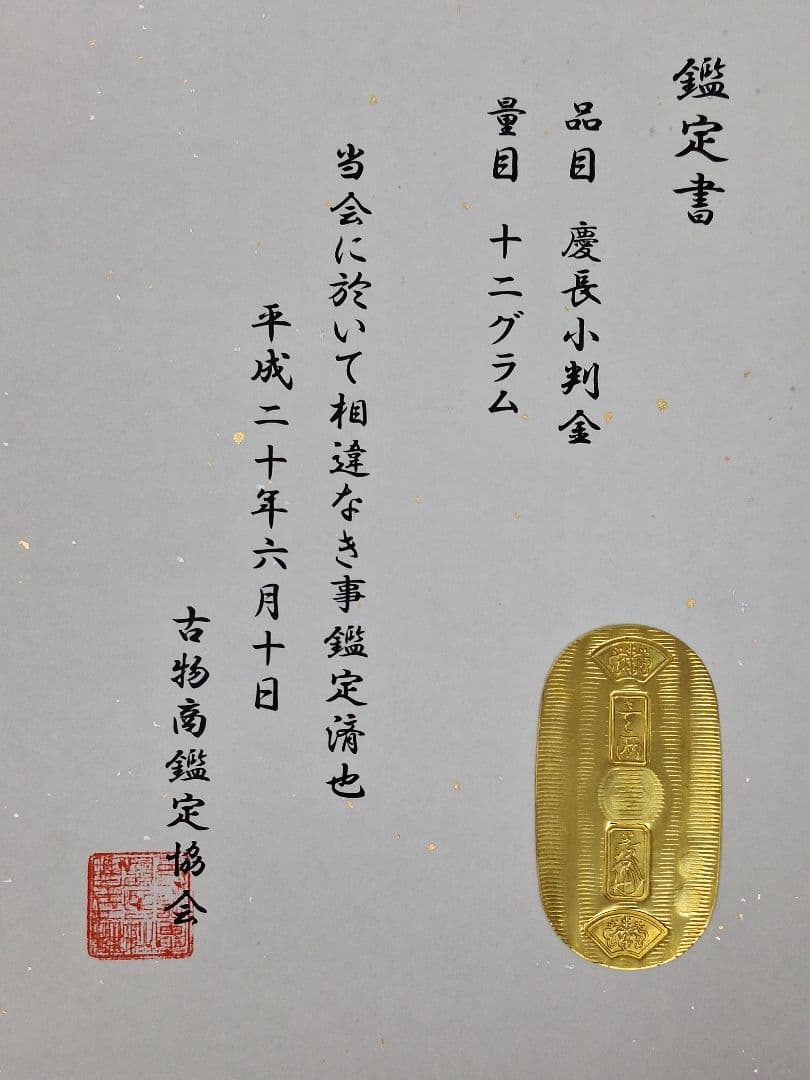 鑑定書
品目 慶長小判金
量目 十二グラム
当会に於いて相違なき事鑑定済也
平成二十年六月十日
古物商鑑定協会